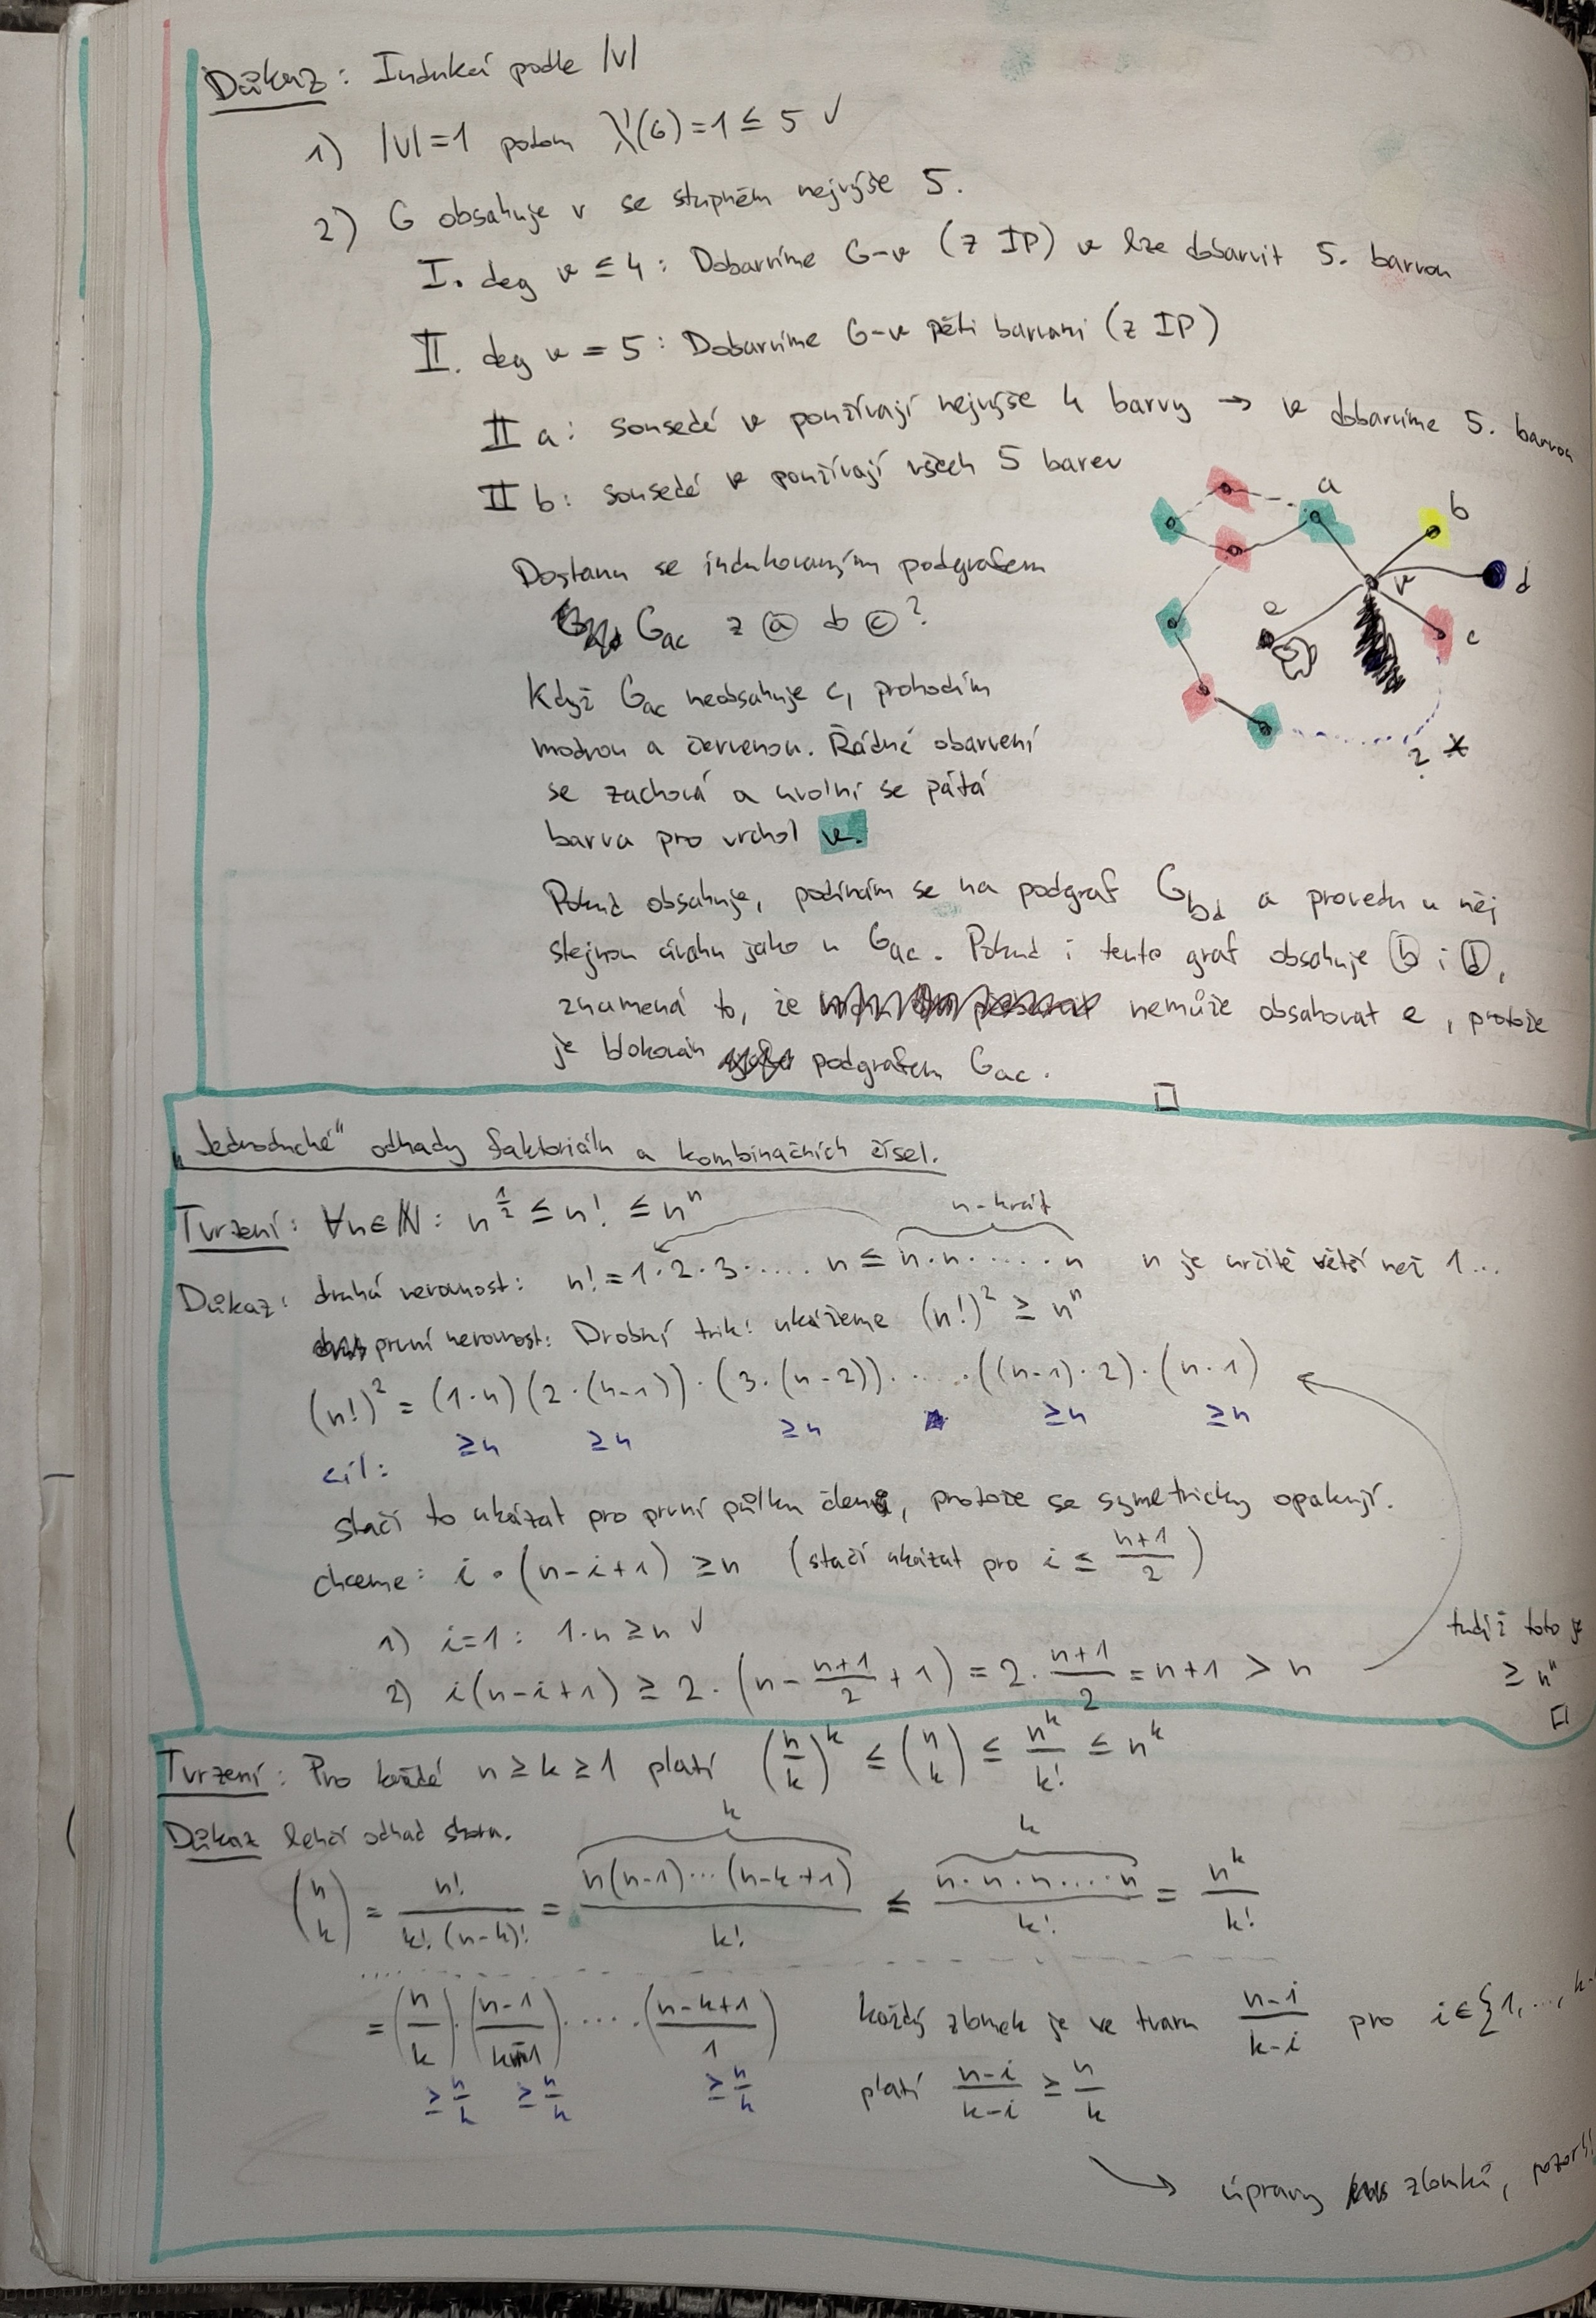 Důkaz: Indukcí podle |V|
1) |V|=1 potom λ'(G)=1≤5 ✓
2) G obsahuje v se stupněm nejvýše 5.
I. deg v ≤ 4: Dobarvíme G-v (z IP) v lze dobarvit 5. barvou
II. deg v = 5: Dobarvíme G-v pěti barvami (z IP)
II a: sousedé v používají nejvýše 4 barvy → v dobarvíme 5. barvou
II b: sousedé v používají všech 5 barev
a
b
d
v
e
c
? *
Dostanu se indukovaným podgrafem
G_ac z ⓐ do ⓒ?
Když G_ac neobsahuje c, prohodím
modrou a červenou. Řádné obarvení
se zachová a uvolní se pátá
barva pro vrchol v.
Pokud obsahuje, podívám se na podgraf G_bd a provedu u něj
stejnou úvahu jako u G_ac. Pokud i tento graf obsahuje ⓑ i ⓓ,
znamená to, že nemůže obsahovat e, protože
je blokován podgrafem G_ac.
□
"Jednoduché" odhady faktoriálu a kombinačních čísel.
Tvrzení: ∀n∈ℕ: n^{1/2} ≤ n! ≤ n^n
n-krát
Důkaz: druhá nerovnost: n! = 1·2·3·.... n ≤ n·n·.....n n je určitě větší než 1...
první nerovnost: Drobný trik: ukážeme (n!)² ≥ n^n
(n!)² = (1·n)(2·(n-1))·(3·(n-2))·.....((n-1)·2)·(n·1)
cíl: ≥n ≥n ≥n ≥n ≥n
stačí to ukázat pro první půlku členů, protože se symetricky opakují.
chceme: i·(n-i+1) ≥n (stačí ukázat pro i ≤ \frac{n+1}{2})
1) i=1: 1·n ≥ n ✓
2) i(n-i+1) ≥ 2·(n-\frac{n+1}{2}+1) = 2·\frac{n+1}{2} = n+1 > n
tudíž toto je
≥ n^n
□
Tvrzení: Pro každé n≥k≥1 platí (\frac{n}{k})^k ≤ \binom{n}{k} ≤ \frac{n^k}{k!} ≤ n^k
Důkaz lehčí odhad shora.
k k
\binom{n}{k} = \frac{n!}{k!·(n-k)!} = \frac{n(n-1)...(n-k+1)}{k!} ≤ \frac{n·n·n.....n}{k!} = \frac{n^k}{k!}
= (\frac{n}{k})·(\frac{n-1}{k-1})·.....(\frac{n-k+1}{1}) každý zlomek je ve tvaru \frac{n-i}{k-i} pro i∈{1,...,k-
≥\frac{n}{k} ≥\frac{n}{k} ≥\frac{n}{k} platí \frac{n-i}{k-i} ≥ \frac{n}{k}
→ úpravy zlomků, pozor!